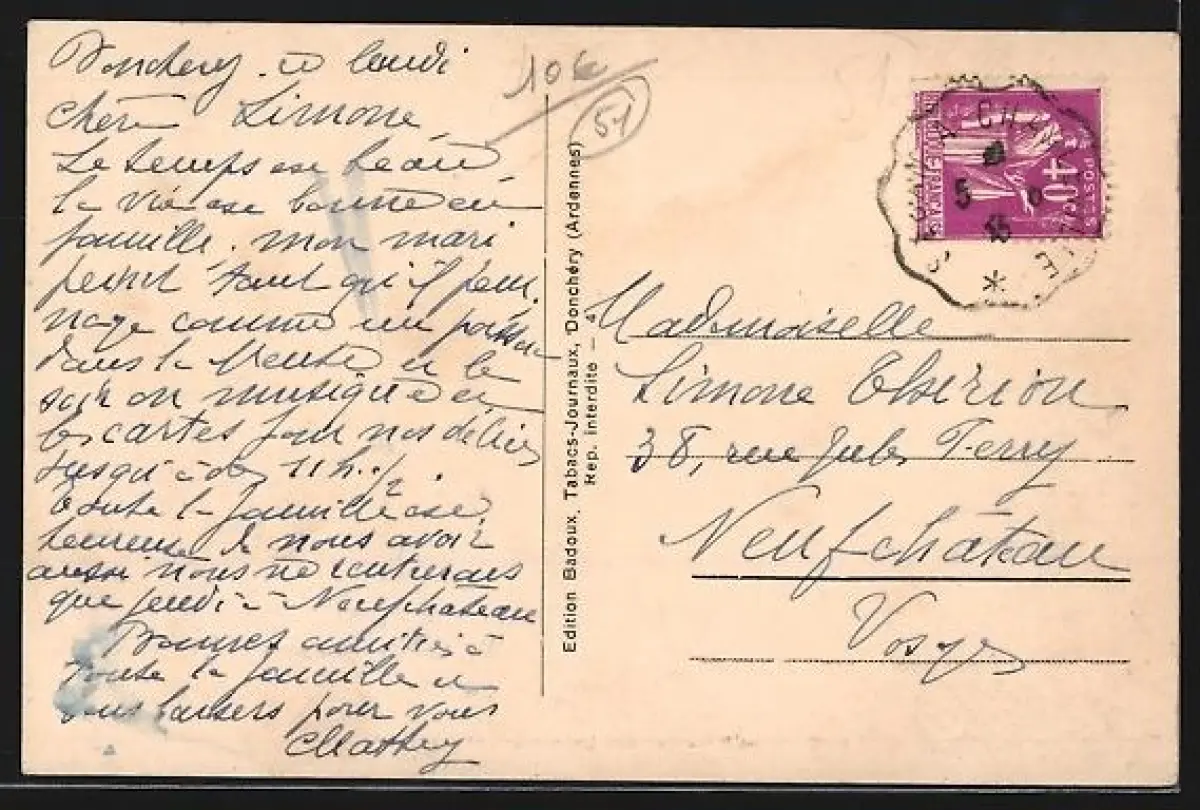 Donchery ce lundi
Chère Simone,
Le temps est beau,
la vie est bonne en
famille. mon mari
peint tant qu'il peut,
nage comme un poisson
dans la Meuse et le
soir on musique et
les cartes pour nos délices
jusqu'à des 11h 1/2.
Toute la famille est
heureuse de nous avoir
aussi nous ne rentrerons
que jeudi à Neufchâteau
Bonnes amitiés à
toute la famille et
bons baisers pour vous
10€
51
Edition Badoux, Tabacs-Journaux, Donchéry (Ardennes)
Rep. interdite
POSTES
40c
5
35
Mademoiselle
Simone
38, rue Jules Ferry
Neufchâteau
Vosges